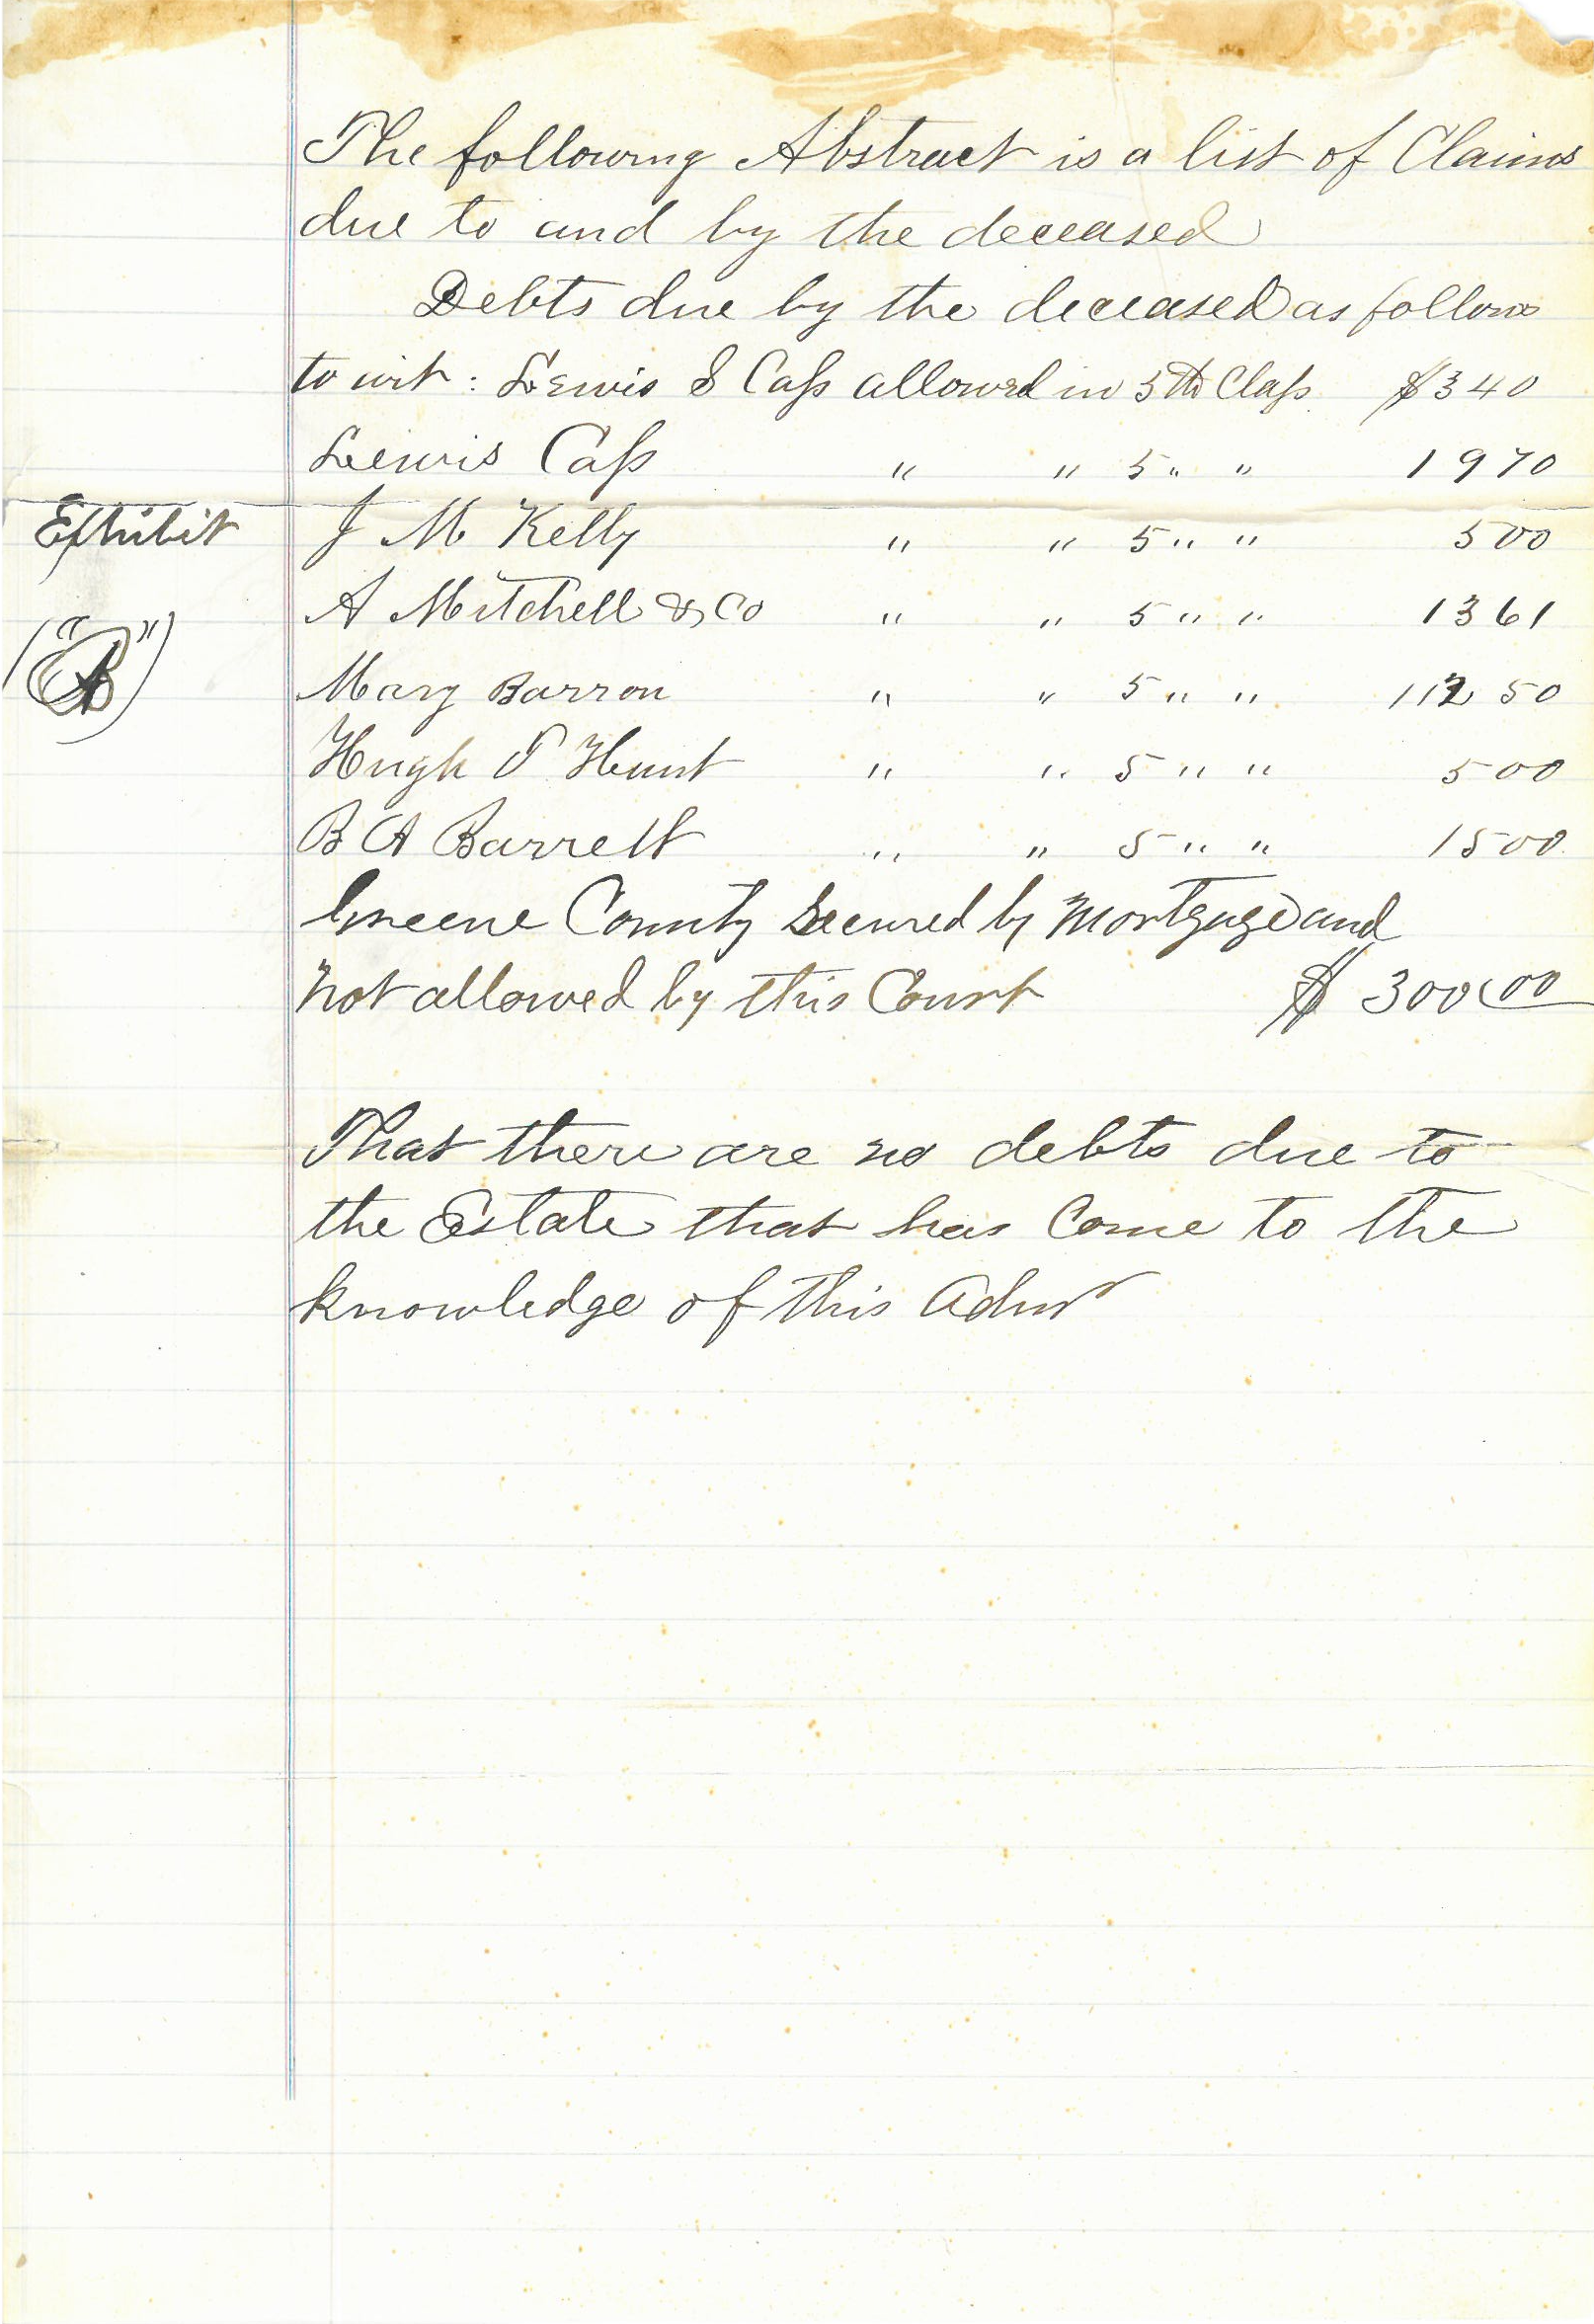 The following Abstract is a list of Claims
due to and by the deceased
Debts due by the deceased as follows
to wit : Lewis S Caſs allowed in 5th Claſs $340
Lewis Caſs " " 5 " " 1970
Exhibit
J M Kelly " " 5 " " 500
A Mitchell & Co " " 5 " " 1361
("B")
Mary Barron " " 5 " " 112 50
Hugh S Hunt " " 5 " " 500
B A Barrett " " 5 " " 1500
Greene County Secured by Mortgage and
not allowed by this Court $ 300 00
That there are no debts due to
the Estate that has Come to the
knowledge of this Admr